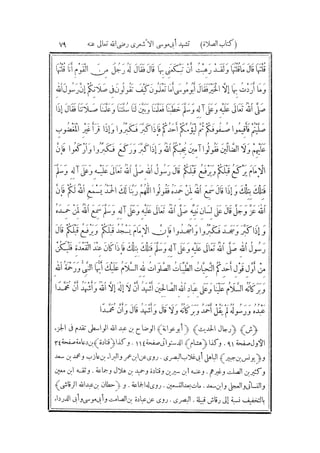 (كتاب الصلاة) تشهد أبي موسى الأشعري رضي الله تعالى عنه ٧٩
قلتها قال ما قلتها ولقد رهبت أن تبكعني بها قال فقال له رجل من القوم أنا قلتها
وما أردت بها إلا الخير فقال أبو موسى أما تعلمون كيف تقولون في صلاتكم إن رسول الله
صلى الله تعالى عليه وعلى آله وسلم خطبنا فعلمنا وبين لنا سنتنا وعلمنا صلاتنا فقال إذا
صليتم فأقيموا صفوفكم ثم ليؤمكم أحدكم فإذا كبر فكبروا وإذا قرأ غير المغضوب
عليهم ولا الضالين فقولوا آمين يحبكم الله وإذا كبر وركع فكبروا واركعوا فإن
الإمام يركع قبلكم ويرفع قبلكم قال رسول الله صلى الله تعالى عليه وعلى آله وسلم
فتلك بتلك وإذا قال سمع الله لمن حمده فقولوا اللهم ربنا لك الحمد يسمع الله لكم فإن
الله عز وجل قال على لسان نبيه صلى الله تعالى عليه وعلى آله وسلم سمع الله لمن حمده
وإذا كبر وسجد فكبروا واسجدوا فإن الإمام يسجد قبلكم ويرفع قبلكم قال
رسول الله صلى الله تعالى عليه وعلى آله وسلم فتلك بتلك فإذا كان عند القعدة فليكن
من أول قول أحدكم التحيات الطيبات الصلوات لله السلام عليك أيها النبي ورحمة الله
وبركاته السلام علينا وعلى عباد الله الصالحين أشهد أن لا إله إلا الله وأشهد أن محمدا
عبده ورسوله لم يقل أحمد وبركاته ولا قال وأشهد قال وأن محمدا
(ش) (رجال الحديث) (أبو عوانة) الوضاح بن عبد الله الواسطي تقدم في الجزء
الأول صفحة ٩١. وكذا (هشام) الدستوائي صفحة ١١٤. وكذا (قتادة) بن دعامة صفحة ٣٤
و(يونس بن جبير) الباهلي أبي غلاب البصري. روى عن ابن عمر والبراء بن عازب ومحمد بن سعد
وكثير بن الصلت وغيرهم. وعنه ابن سيرين وقتادة وحميد بن هلال وجماعة. وثقه ابن معين
والنسائي والعجلي وابن سعد. مات بعد التسعين. روى له الجماعة. و(حطان بن عبد الله الرقاشي)
بالتخفيف نسبة إلى رقاش قبيلة. البصري. روى عن عبادة بن الصامت وأبي موسى وأبي الدرداء.